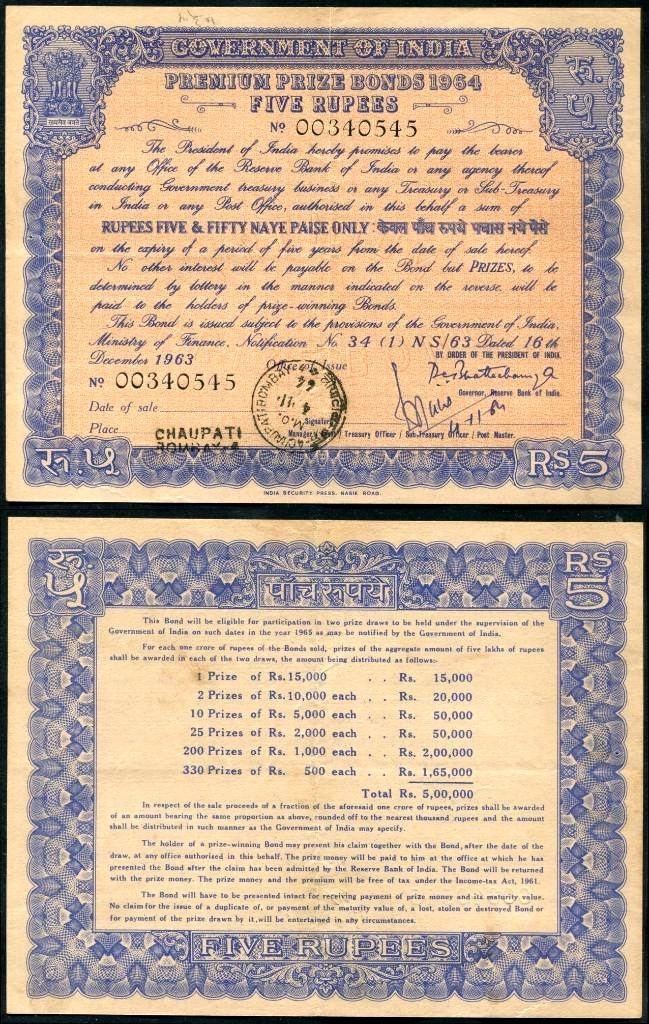 GOVERNMENT OF INDIA
रु.
५
सत्यमेव जयते
PREMIUM PRIZE BONDS 1964
FIVE RUPEES
Nº 00340545
The President of India hereby promises to pay the bearer
at any Office of the Reserve Bank of India or any agency thereof
conducting Government treasury business or any Treasury or Sub-Treasury
in India or any Post Office, authorised in this behalf a sum of
RUPEES FIVE & FIFTY NAYE PAISE ONLY : केवल पाँच रुपये पचास नये पैसे
on the expiry of a period of five years from the date of sale hereof.
No other interest will be payable on the Bond but PRIZES, to be
determined by lottery in the manner indicated on the reverse, will be
paid to the holders of prize-winning Bonds.
This Bond is issued subject to the provisions of the Government of India,
Ministry of Finance, Notification No 34 (1) NS/63 Dated 16th
December 1963
Office of Issue
BY ORDER OF THE PRESIDENT OF INDIA
Nº 00340545
Governor, Reserve Bank of India.
Date of sale
Signature
Place
Manager / Treasury Officer / Sub-Treasury Officer / Post Master.
CHAUPATI
BOMBAY
रु. ५
RS 5
INDIA SECURITY PRESS, NASIK ROAD.
रु.
५
पाँच रुपये
RS
5
This Bond will be eligible for participation in two prize draws to be held under the supervision of the
Government of India on such dates in the year 1965 as may be notified by the Government of India.
For each one crore of rupees of the Bonds sold, prizes of the aggregate amount of five lakhs of rupees
shall be awarded in each of the two draws, the amount being distributed as follows:-
1 Prize of Rs. 15,000 . . Rs. 15,000
2 Prizes of Rs. 10,000 each . . Rs. 20,000
10 Prizes of Rs. 5,000 each . . Rs. 50,000
25 Prizes of Rs. 2,000 each . . Rs. 50,000
200 Prizes of Rs. 1,000 each . . Rs. 2,00,000
330 Prizes of Rs. 500 each . . Rs. 1,65,000
Total Rs. 5,00,000
In respect of the sale proceeds of a fraction of the aforesaid one crore of rupees, prizes shall be awarded
of an amount bearing the same proportion as above, rounded off to the nearest thousand rupees and the amount
shall be distributed in such manner as the Government of India may specify.
The holder of a prize-winning Bond may present his claim together with the Bond, after the date of the
draw, at any office authorised in this behalf. The prize money will be paid to him at the office at which he has
presented the Bond after the claim has been admitted by the Reserve Bank of India. The Bond will be returned
with the prize money. The prize money and the premium will be free of tax under the Income-tax Act, 1961.
The Bond will have to be presented intact for receiving payment of prize money and its maturity value.
No claim for the issue of a duplicate of, or payment of the maturity value of, a lost, stolen or destroyed Bond or
for payment of the prize drawn by it, will be entertained in any circumstances.
FIVE RUPEES